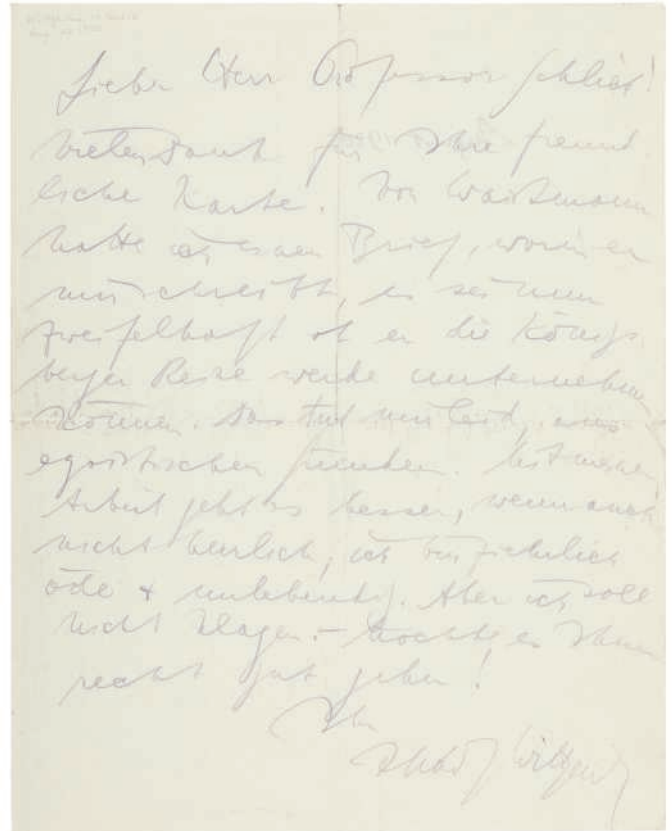 Lieber Herr Professor Schlick!
Vielen Dank für Ihre freund
liche Karte. Von Waismann
hatte ich einen Brief, worin er
mir schreibt, es sei nun
zweifelhaft ob er die Königs
berger Reise werde unternehmen
können. Das tut mir leid, aus
egoistischen Gründen. Mit meiner
Arbeit geht es besser, wenn auch
nicht herrlich, ich bin ziemlich
öde & unlebendig. Aber ich soll
nicht klagen. – Möchte es Ihnen
recht gut gehen!
Ihr
Ludwig Wittgenst